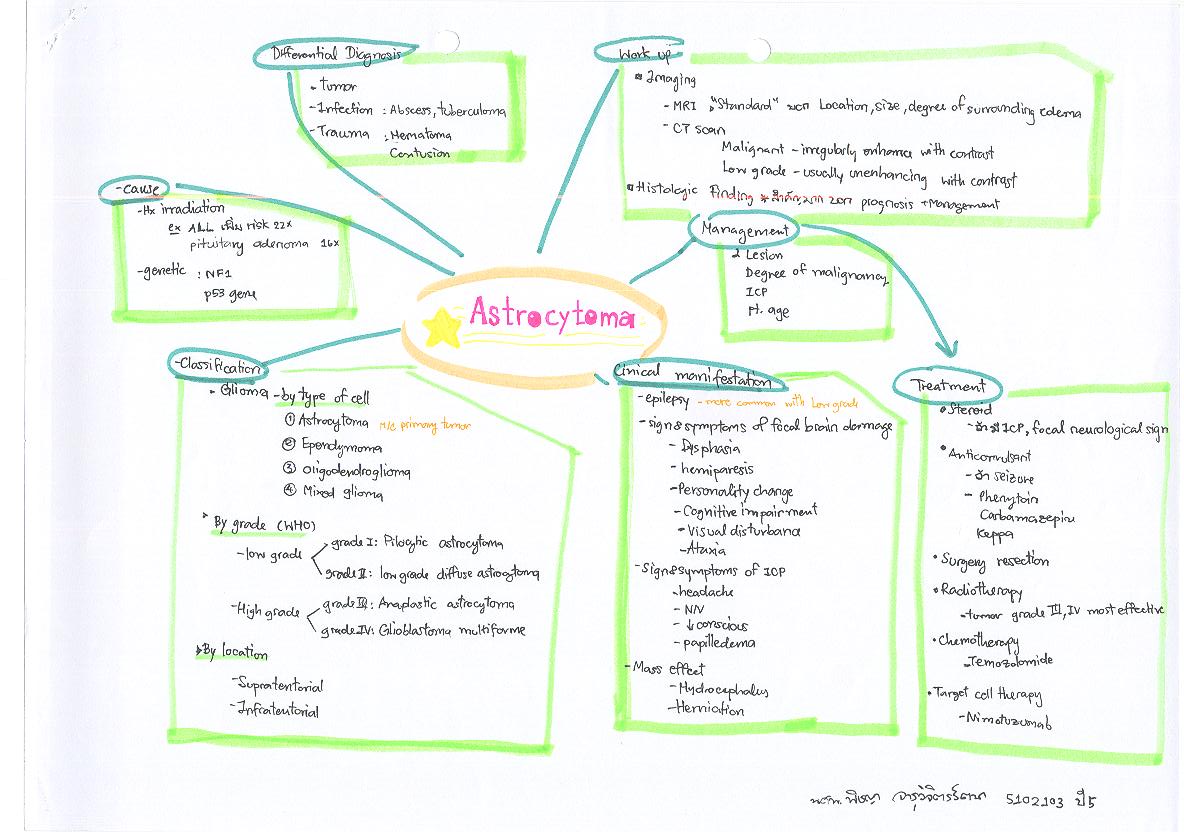 Differential Diagnosis
- Tumor
- Infection : Abscess, tuberculoma
- Trauma : Hematoma
Contusion
Work up
Imaging
- MRI "Standard" บอก Location, size, degree of surrounding edema
- CT scan
Malignant - irregularly enhance with contrast
Low grade - usually unenhancing with contrast
Histologic Finding บอก prognosis + Management
- cause
- Hx irradiation
ex ALL เพิ่ม risk 22x
pituitary adenoma 16x
- genetic : NF1
p53 gene
Management
Lesion
Degree of malignancy
ICP
Pt. age
Astrocytoma
- Classification
Glioma - by type of cell
① Astrocytoma M/C primary tumor
② Ependymoma
③ Oligodendroglioma
④ Mixed glioma
By grade (WHO)
- low grade
grade I: Pilocytic astrocytoma
grade II: low grade diffuse astrocytoma
- High grade
grade III: Anaplastic astrocytoma
grade IV: Glioblastoma multiforme
By location
- Supratentorial
- Infratentorial
Clinical manifestation
- epilepsy - more common with Low grade
- sign & symptoms of focal brain damage
- Dysphasia
- hemiparesis
- Personality change
- Cognitive impairment
- Visual disturbance
- Ataxia
- Sign & symptoms of ICP
- headache
- N/V
- ↓ conscious
- papilledema
- Mass effect
- Hydrocephalus
- Herniation
Treatment
• Steroid
ICP, focal neurological sign
• Anticonvulsant
seizure
- Phenytoin
Carbamazepine
Keppa
• Surgery resection
• Radiotherapy
- tumor grade III, IV most effective
• Chemotherapy
- Temozolomide
• Target cell therapy
- Nimotuzumab
5102103 ปี 5